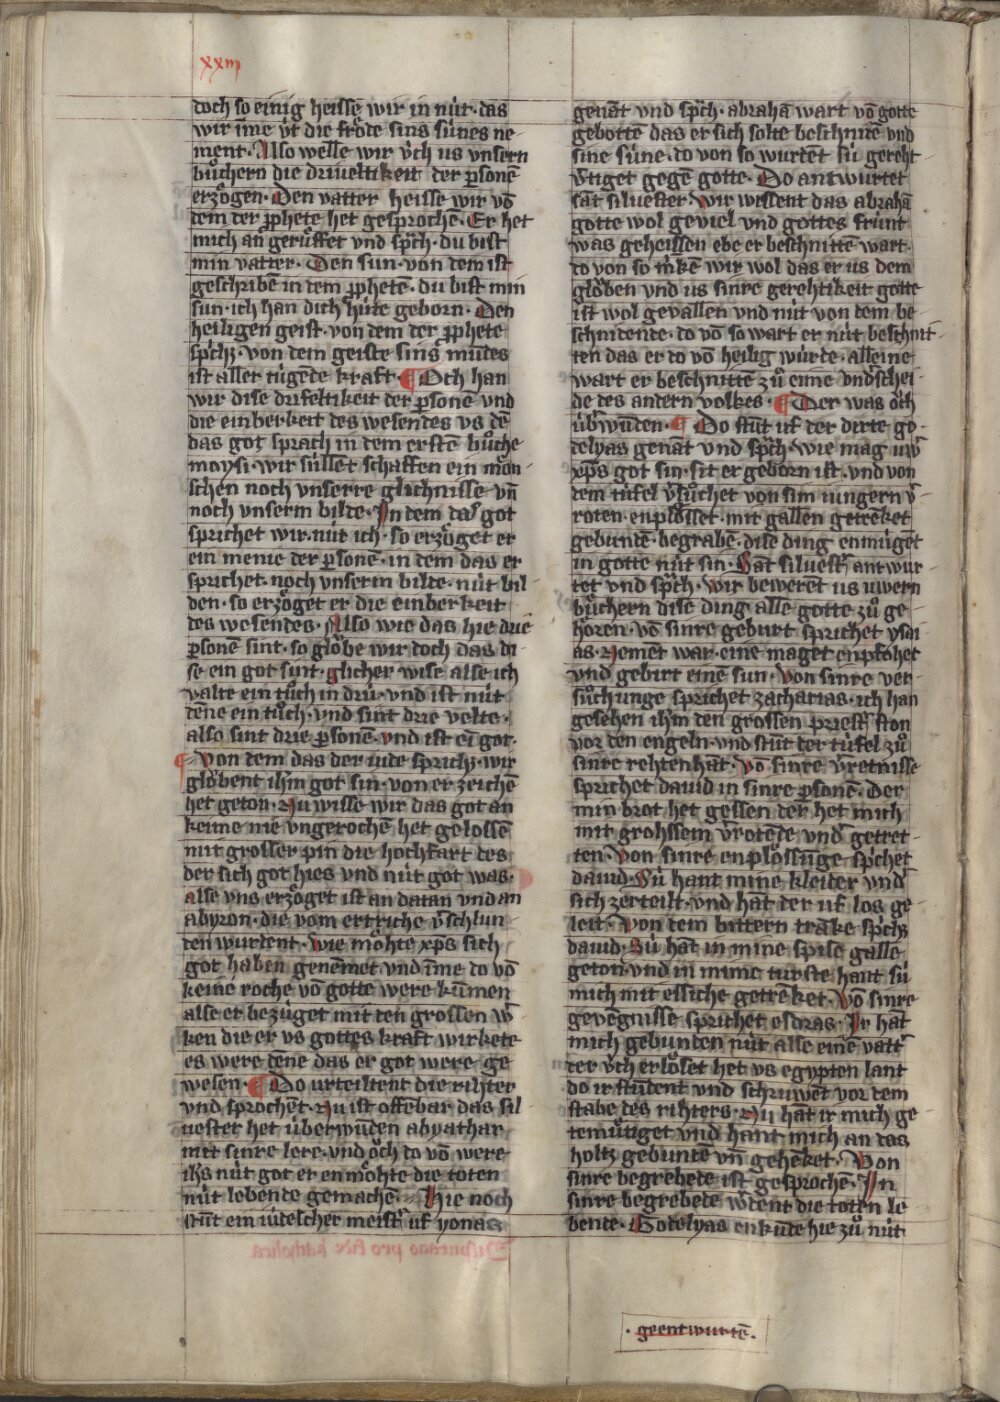 xxiij
doch so einig heissē wir in nùt· das
wir ime v̄t die frôde sins sùnes ne-
ment· Also welle wir v̂ch us vnsern
bûchern die driueltikeit der ꝑsonē
erzôgen· Den vatter heisse wir vō
dem der ꝓphete het gesprochē· Er het
mich an gerûffet vnd sp̄ch· du bist
min vatter· Den sun· von dem ist
geschribē in dem ꝓphetē· du bist min
sun· ich han dich hùte geborn· Den
heiligen geist· von dem der ꝓphete
sp̄chꝫ· von dem geiste sins mūdes
ist aller tùgēde kraft· ¶ Och han
wir dise drifeltikeit der ꝑsonē vnd
die einberkeit des wesendes vs dē
das got sprach in dem erstē bûche
moysi· wir sùllēt schaffen ein môn-
schen noch vnserre glichnisse vn̄
noch vnserm bilde· In dem das got
sprichet wir· nùt ich· so erzôget er
ein menie der ꝑsonē· in dem das er
sprichet· noch vnserm bilde· nùt bil-
den· so erzôget er die einberkeit
des wesendes· Also wie das hie drie
ꝑsonē sint· so glôbe wir doch das di-
se ein got sint· glicher wise alse ich
valte ein tûch in drù· vnd ist nùt
dēne ein tûch· vnd sint drie velte·
also sint drie ꝑsonē· vnd ist eī got·
¶ Von dem das der iude sprichꝫ· wir
glôbent ihm got sin· von er zeichē
het geton· Nu wisse wir das got an
keime nie vngerochē het gelossē
mit grosser pin die hochfart des
der sich got hies vnd nùt got was·
alse vns erzôget ist an datan vnd an
abyron· die vom ertriche v̄schlun-
den wurdent· wie môhte xp̄s sich
got haben genēmet vnd īme do vō
keine roche vō gotte were kūmen
alse er bezùget mit den grossen w̄-
ken die er vs gottes kraft wirkete
es were dēne das er got were ge-
wesen· ¶ Do urteiltent die rihter
vnd sprochēt· Nu ist offēbar das sil-
uester het ùberwūden abyathar
mit sinre lere· vnd ôch do vō were
ih̄s nùt got er en môhte die toten
nùt lebende gemachē· Hie noch
stūt ein iùdescher meist̄ uf yonas
genāt vnd sp̄ch· abrahā wart vō gotte
gebottē das er sich solte beschnidē vnd
sine sùne· do von so wurdēt sù gereht-
v̄tiget gegē gotte· Do antwurtet
sāt siluester wir wissent das abrahā
gotte wol geviel vnd gottes frùnt
was geheissen ebe er beschnittē wart·
do von so m̄kē wir wol das er us dem
glôben vnd us sinre gerehtikeit gotte
ist wol gevallen vnd nùt von dem be-
schnidende· do vō so wart er nùt beschnit-
ten das er do vō heilig wùrde· alleine
wart er beschnittē zû eime vnd̄schei-
de des andern volkes· ¶ Der was ôch
ùb̄wūden· ¶ Do stūt uf der dirte go-
delyas genāt vnd sp̄ch· wie mag uw̄
xp̄s got sin· sit er geborn ist· vnd von
dem tùfel v̄sûchet von sim iungern v̄-
roten· enplôsset· mit gallen getrēket
gebundē· begrabē· dise ding enmùgēt
in gotte nùt sin· Sāt siluest̄ antwur-
tet vnd sp̄ch· wir bewerēt us uwern
bûchern dise ding alle gotte zû ge-
hôren· vō sinre geburt sprichet ysai-
as· Nemēt war· eine maget enpfohet
vnd gebirt einē sun· Von sinre ver-
sûchunge sprichet zacharias· ich han
gesehen ih̄m den grossen priest̄ ston
vor den engeln· vnd stūt der tùfel zû
sinre rehtenhāt· vō sinre v̄retnisse
sprichet dauid in sinre ꝑsonē· Der
min brot het gessen der het mich
mit grohssem v̄rotēde vnd̄ getret-
ten· Von sinre enplôssunge sp̄chet
dauid· Sù hant mine kleider vnd̄
sich zerteilt· vnd hāt der uf los ge-
leit· Von dem bittern trāke sp̄chꝫ
dauid· Sù hāt in mine spise galle
geton· vnd in mime turste hant sù
mich mit essiche getrēket· Vō sinre
gevēgnisse sprichet esdras· Ir hāt
mich gebunden nùt alse einē vatt̄
der v̂ch erlôset het vs egypten lant
do ir stūdent vnd schruwēt vor dem
stabe des rihters· Nu hāt ir mich ge-
demûtiget vnd hant mich an das
holtz gebundē vn̄ gehēket· Von
sinre begrebede ist gesprochē· In
sinre begrebede w̄dent die toten le-
bende· Godelyas enkūde hie zû nùt
· geentwurtē·